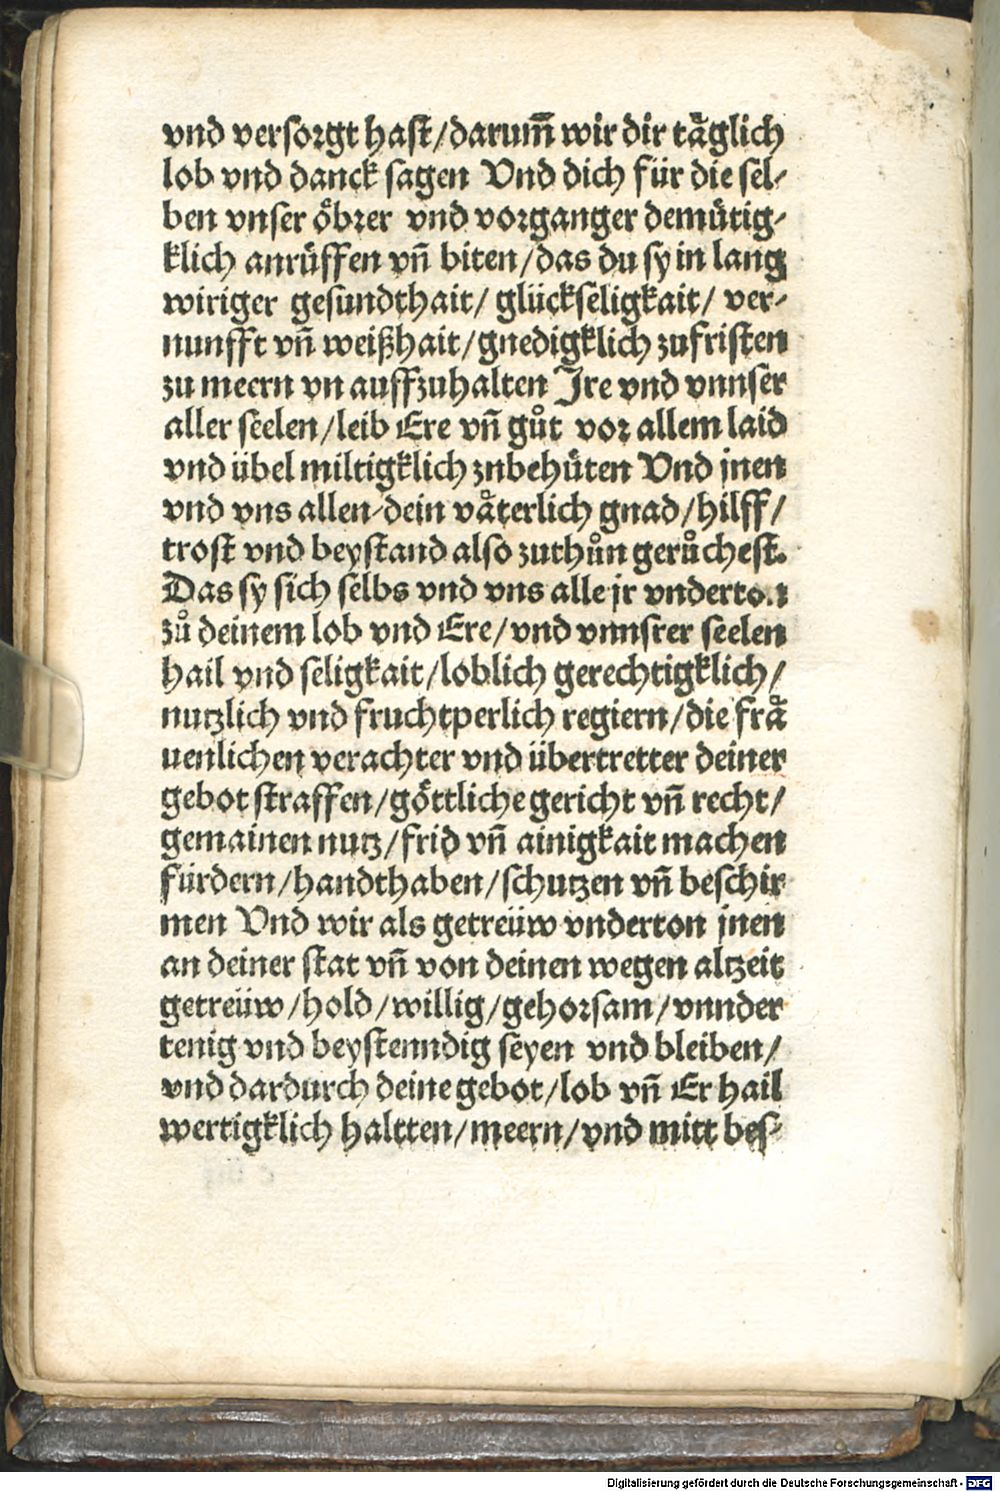 vnd versorgt hast/darum̄ wir dir tåglich
lob vnd danck sagen Vnd dich für die sel-
ben vnser öbrer vnd vorganger demütig-
klich anrüffen vn̄ biten/das du sy in lang
wiriger gesundthait/ glückseligkait/ ver-
nunfft vn̄ weißhait/gnedigklich zufristen
zu meern vn auffzuhalten Ire vnd vnnser
aller seelen/leib Ere vn̄ gůt vor allem laid
vnd übel miltigklich znbehüten Vnd jnen
vnd vns allen-dein våterlich gnad/hilff/
trost vnd beystand also zuthůn gerůchest.
Das sy sich selbs vnd vns alle jr vnderton
zů deinem lob vnd Ere/vnd vnnsrer seelen
hail vnd seligkait/loblich gerechtigklich/
nutzlich vnd fruchtperlich regiern/die frå
uenlichen verachter vnd übertretter deiner
gebot straffen/göttliche gericht vn̄ recht/
gemainen nutz/frid vn̄ ainigkait machen
fürdern/handthaben/schutzen vn̄ beschir
men Vnd wir als getreüw vnderton jnen
an deiner stat vn̄ von deinen wegen altzeit
getreüw/hold/willig/gehorsam/vnnder
tenig vnd beystenndig seyen vnd bleiben/
vnd dardurch deine gebot/lob vn̄ Er hail
wertigklich haltten/meern/vnd mitt bes-
Digitalisierung gefördert durch die Deutsche Forschungsgemeinschaft - DFG